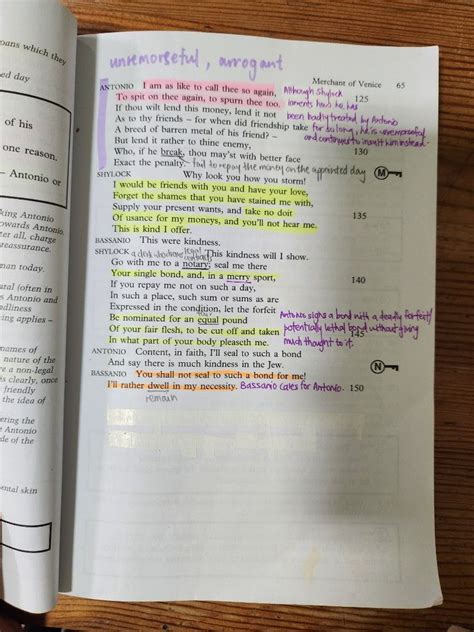 oans which they
ed day
of his
one reason.
- Antonio or
king Antonio
owards Antonio.
er all, charge
reassurance.
man today.
ural (often in
s Antonio and
adliness
ing applies –
names of
nature of the
re a non-legal
es clearly, once
the idea of
ering
e Antonio
de of the
ental skin
unremorseful, arrogant
Merchant of Venice 65
ANTONIO I am as like to call thee so again,
To spit on thee again, to spurn thee too. 125
If thou wilt lend this money, lend it not
As to thy friends – for when did friendship take
A breed of barren metal of his friend? –
But lend it rather to thine enemy,
Who, if he break, thou may'st with better face 130
Exact the penalty.
Although Shylock
laments how he has
been badly treated by Antonio
for so long, he is unremorseful
and continued to insult him instead.
fail to repay the money on the appointed day
M
SHYLOCK Why look you how you storm!
I would be friends with you and have your love,
Forget the shames that you have stained me with,
Supply your present wants, and take no doit 135
Of usance for my moneys, and you'll not hear me.
This is kind I offer.
BASSANIO This were kindness.
SHYLOCK This kindness will I show.
legal contracts
Go with me to a notary, seal me there
Your single bond, and, in a merry sport, 140
If you repay me not on such a day,
In such a place, such sum or sums as are
Expressed in the condition, let the forfeit
Be nominated for an equal pound
Of your fair flesh, to be cut off and taken 145
In what part of your body pleaseth me.
Antonio signs a bond with a deadly forfeit/
potentially lethal bond without giving
much thought to it.
ANTONIO Content, in faith, I'll seal to such a bond
And say there is much kindness in the Jew.
N
BASSANIO You shall not seal to such a bond for me!
I'll rather dwell in my necessity. 150
Bassanio cares for Antonio.
remain